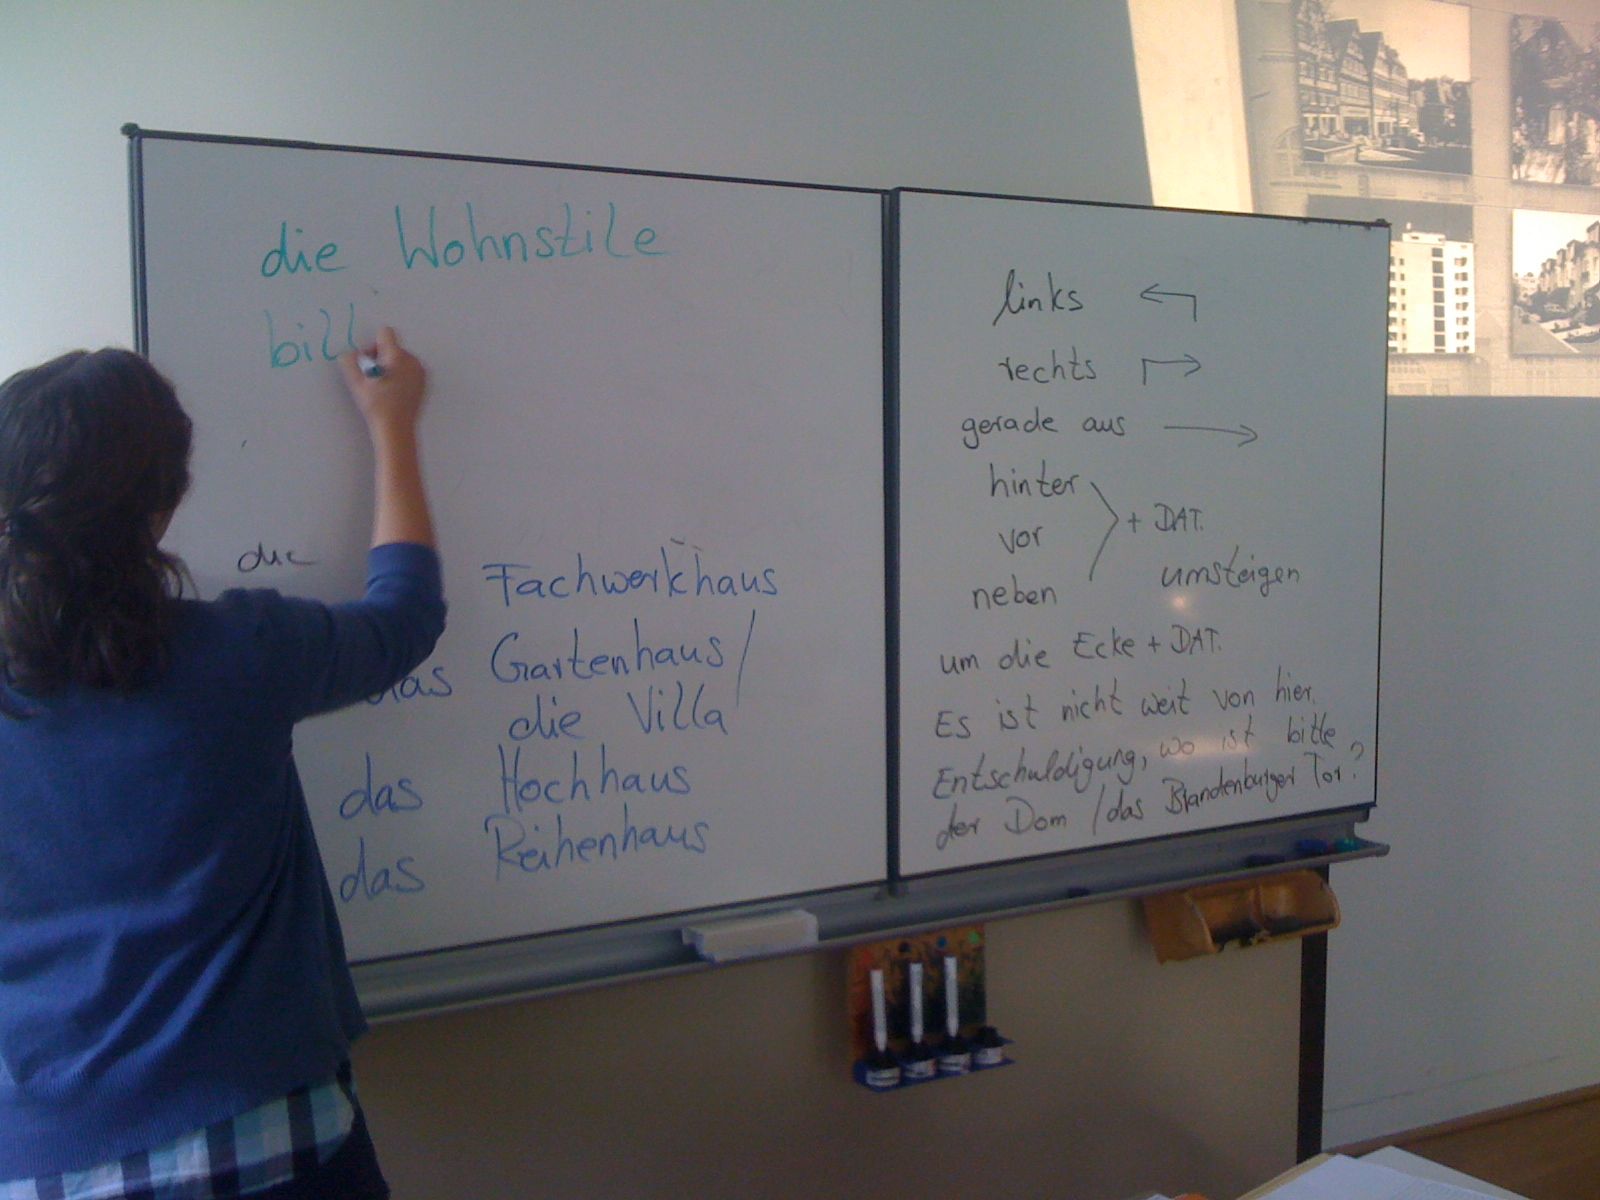 die Wohnstile
bill
die
Fachwerkhaus
das Gartenhaus/
die Villa
das Hochhaus
das Reihenhaus
links
rechts
gerade aus
hinter
vor
neben
+ DAT.
umsteigen
um die Ecke + DAT.
Es ist nicht weit von hier.
Entschuldigung, wo ist bitte
der Dom / das Brandenburger Tor?